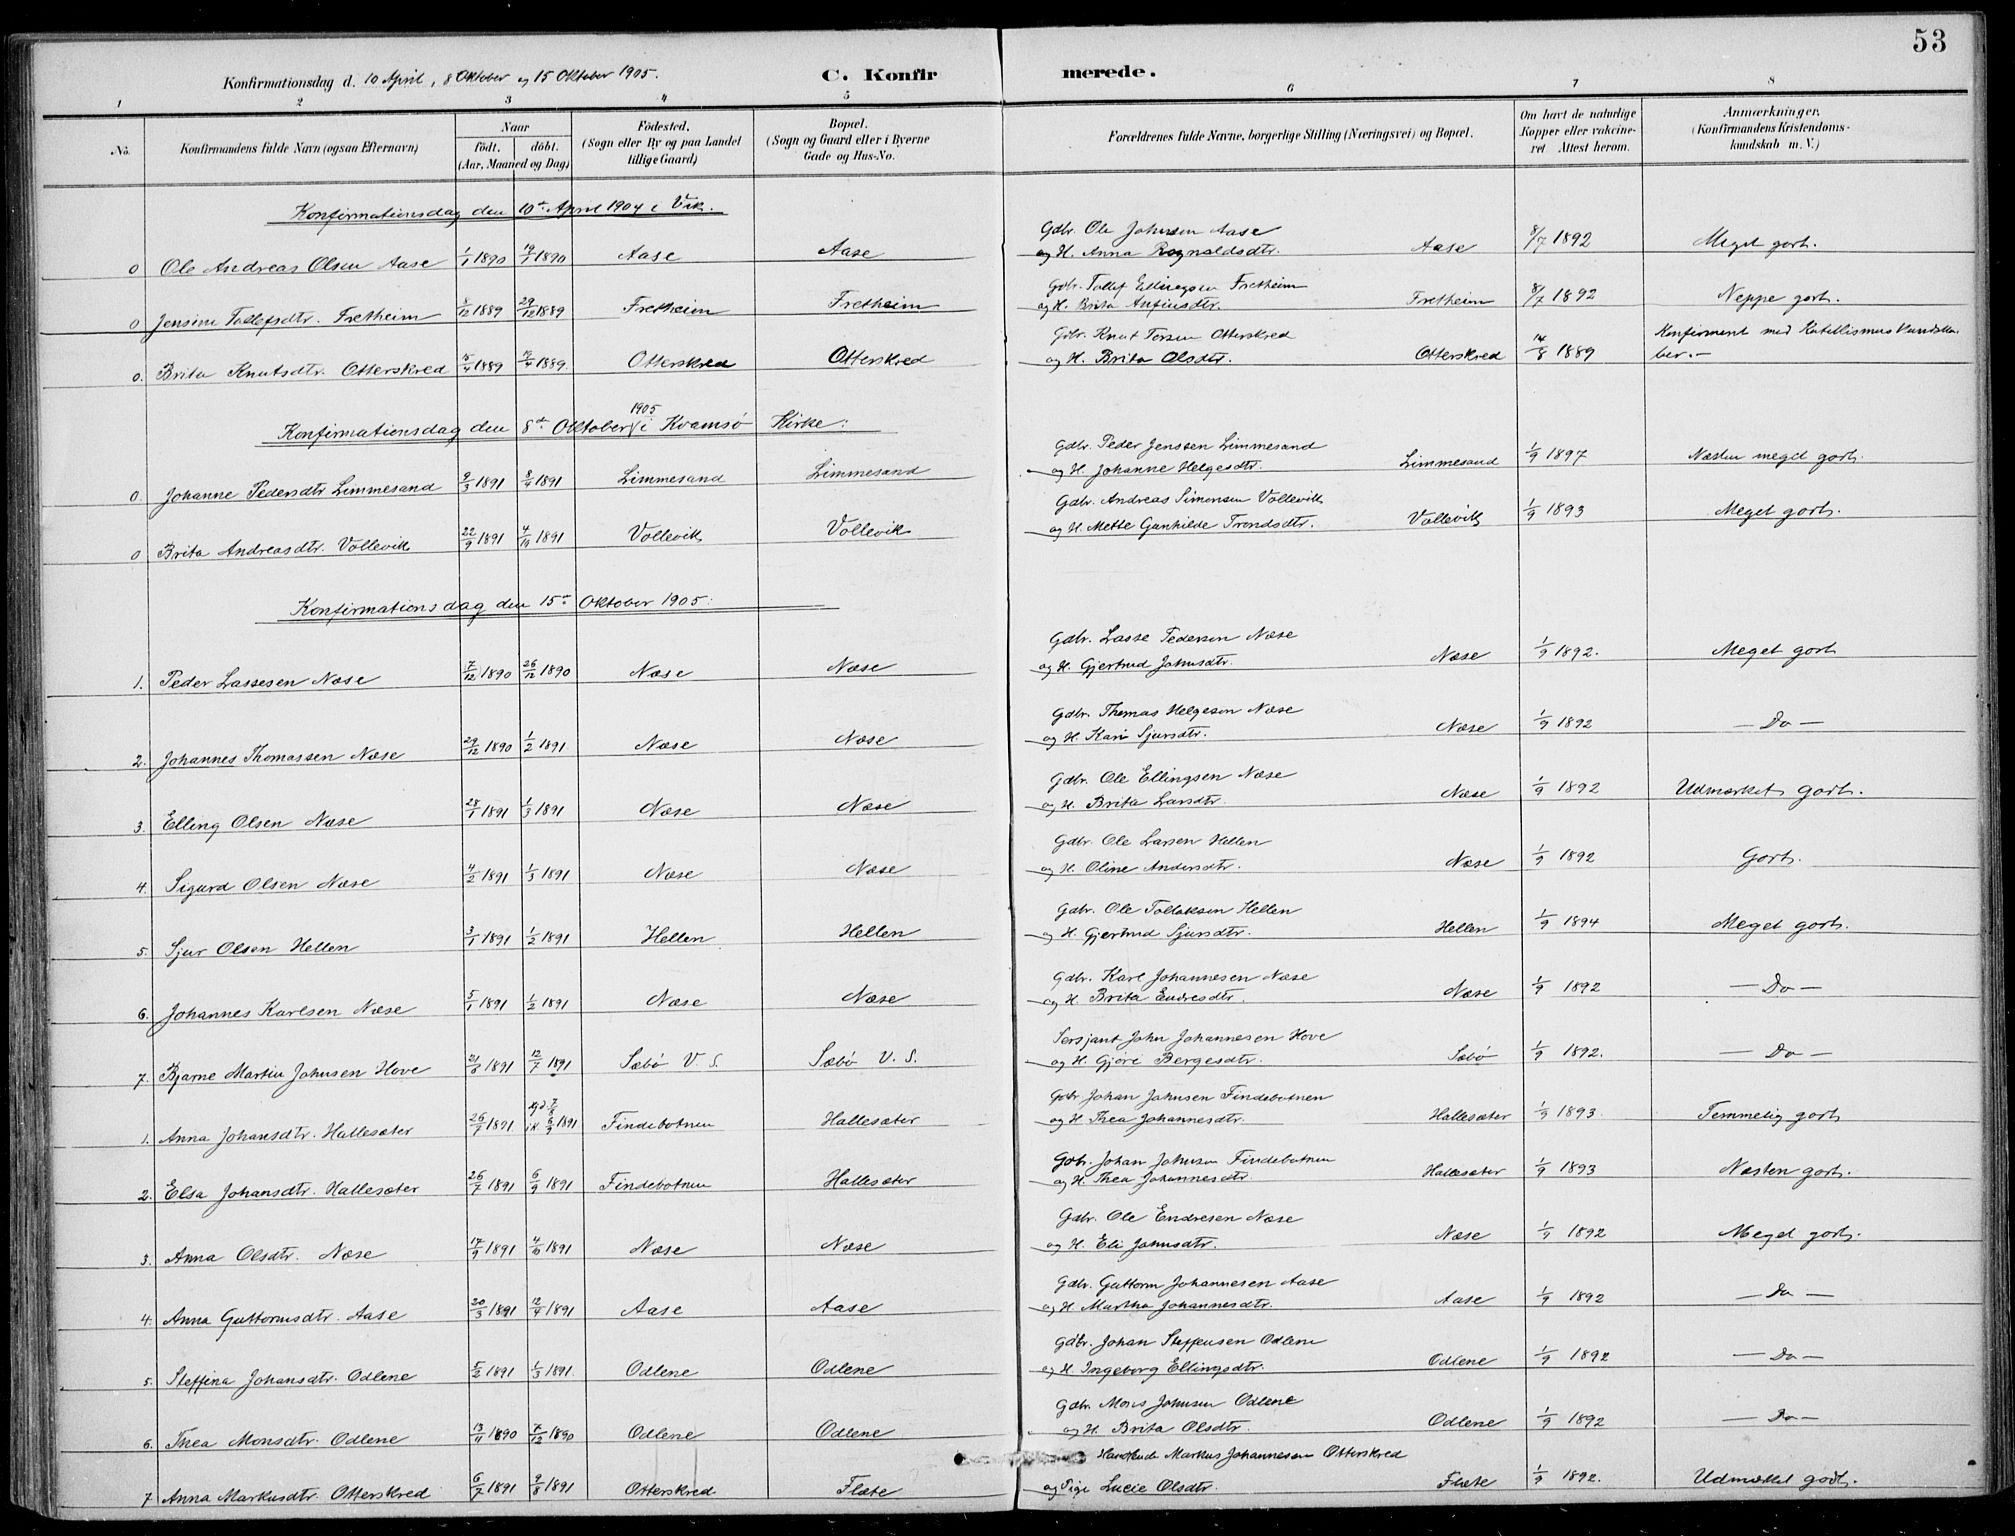 53
Konfirmationsdag d. 10 April, 8 Oktober og 15 Oktober 1905. C. Konfirmerede.
1 2 3 4 5 6 7 8
No. Konfirmandens fulde Navn (ogsaa Efternavn) Naar født. døbt. (Aar, Maaned og Dag) Fødested. (Sogn eller By og paa Landet tillige Gaard) Bopæl. (Sogn og Gaard eller i Byerne Gade og Hus-No. Forældrenes fulde Navne, borgerlige Stilling (Næringsvei) og Bopæl. Om havt de naturlige Kopper eller vakcineret Attest herom. Anmærkninger. (Konfirmandens Kristendomskundskab m. V.)
Konfirmationsdag den 10de April 1904 i Vik.
0 Ole Andreas Olsen Aase 1/1 1890 19/1 1890 Aase Aase Gdbr. Ole Johnsen Aase
og H. Anna Rognaldsdtr. Aase 8/7 1892 Meget godt.
0 Jensine Tollefsdtr. Fretheim 5/12 1889 29/12 1889 Fretheim Fretheim Gdbr. Tollef Ellingsen Fretheim
og H. Brita Anfinsdtr. Fretheim 8/7 1892 Neppe godt.
0. Brita Knutsdtr. Otterskred 15/4 1889 19/4 1889 Otterskred Otterskred Gdbr. Knut Torsen Otterskred
og H. Brita Olsdtr. Otterskred 14/8 1889 Konfirment med Katekismus kundska-
ber.-
Konfirmationsdag den 8de Oktober 1905 i Kvamsø Kirke:
0. Johanne Pedersdtr Limmesand 9/3 1891 8/4 1891 Limmesand Limmesand Gdbr. Peder Jenssen Limmesand
og H. Johanne Helgesdtr. Limmesand 1/9 1897 Næsten meget godt.
0 Brita Andreasdtr. Vollevik 22/9 1891 4/10 1891 Vollevik Vollevik Gdbr. Andreas Simonsen Vollevik
og H. Mette Gunhilde Trondsdtr. Vollevik 1/9 1893 Meget godt.
Konfirmationsdag den 15de Oktober 1905:
1. Peder Lassesen Næse 7/12 1890 26/12 1890 Næse Næse Gdbr. Lasse Pedersen Næse
og H. Gjertrud Johnsdtr. Næse 1/9 1892. Meget godt
2. Johannes Thomassen Næse 29/12 1890 1/2 1891 Næse Næse Gdbr. Thomas Helgesen Næse
og H. Kari Sjursdtr. Næse 1/9 1892 — Do —
3. Elling Olsen Næse 28/1 1891 1/3 1891 Næse Næse Gdbr. Ole Ellingsen Næse
og H. Brita Larsdtr. Næse 1/9 1892 Udmærket godt.
4. Sigurd Olsen Næse 4/2 1891 1/3 1891 Næse Næse Gdbr. Ole Larsen Hellen
og H. Oline Andersdtr. Næse 1/9 1892 Godt.
5. Sjur Olsen Hellen 3/1 1891 1/2 1891 Hellen Hellen Gdbr. Ole Tollaksen Hellen
og H. Gjertrud Sjursdtr. Hellen 1/9 1894 Meget godt.
6. Johannes Karlsen Næse 5/1 1891 1/2 1891 Næse Næse Gdbr. Karl Johannesen Næse
og H. Brita Endresdtr. Næse 1/9 1892 — Do —
7. Bjarne Martin Johnsen Hove 21/6 1891 12/7 1891 Sæbø V. S. Sæbø V. S. Sersjant John Johannesen Hove
og H. Gjøri Bergesdtr. Sæbø 1/9 1892. — Do —
1. Anna Johansdtr. Hallesæter 26/7 1891 hjd. 7/8 i K. 6/9 1891 Findebotnen Hallesæter Gdbr. Johan Johnsen Findebotnen
og H. Thea Johannesdtr. Hallesæter 1/9 1893. Temmelig godt
2. Elsa Johansdtr. Hallesæter 26/7 1891 6/9 1891 Findebotnen Hallesæter Gdbr. Johan Johnsen Findebotnen
og H. Thea Johannesdtr. Hallesæter 1/9 1893 Næsten godt.
3. Anna Olsdtr. Næse 17/9 1891 4/10 1891 Næse Næse Gdbr. Ole Endresen Næse
og H. Eli Johnsdtr. Næse 1/9 1892 Meget godt.
4. Anna Guttormsdtr. Aase 20/3 1891 12/4 1891 Aase Aase Gdbr. Guttorm Johannesen Aase
og H. Martha Johannesdtr. Aase 1/9 1892 — Do —
5. Steffina Johansdtr. Odlene 5/2 1891 1/3 1891. Odlene Odlene Gdbr. Johan Steffensen Odlene
og H. Ingeborg Ellingsdtr. Odlene 1/9 1892 — Do —
6. Thea Monsdtr. Odlene 13/11 1890 7/12 1890 Odlene Odlene Gdbr. Mons Johnsen Odlene
og H. Brita Olsdtr. Odlene 1/9 1892 — Do —
7 Anna Markusdtr. Otterskred 6/7 1891 9/8 1891 Otterskred Flæte Handlende Markus Johannesen Otterskred
og Pige Lucie Olsdtr. Flæte 1/9 1892. Udmærket godt.